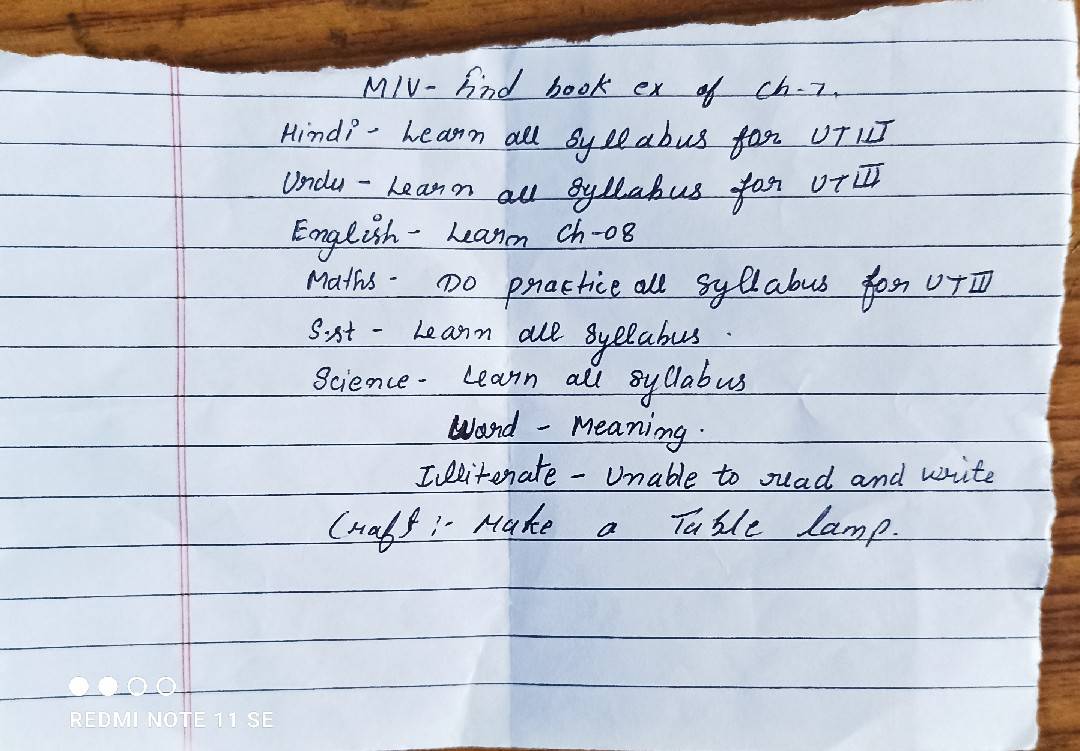 M/V- find book ex of ch-7.
Hindi - Learn all syllabus for UT III
Urdu - Learn all syllabus for UT III
English - Learn Ch-08
Maths - Do practice all syllabus for UT III
S.st - Learn all syllabus.
Science - Learn all syllabus
Word - Meaning.
Illiterate - Unable to read and write
Craft :- Make a Table lamp.
REDMI NOTE 11 SE